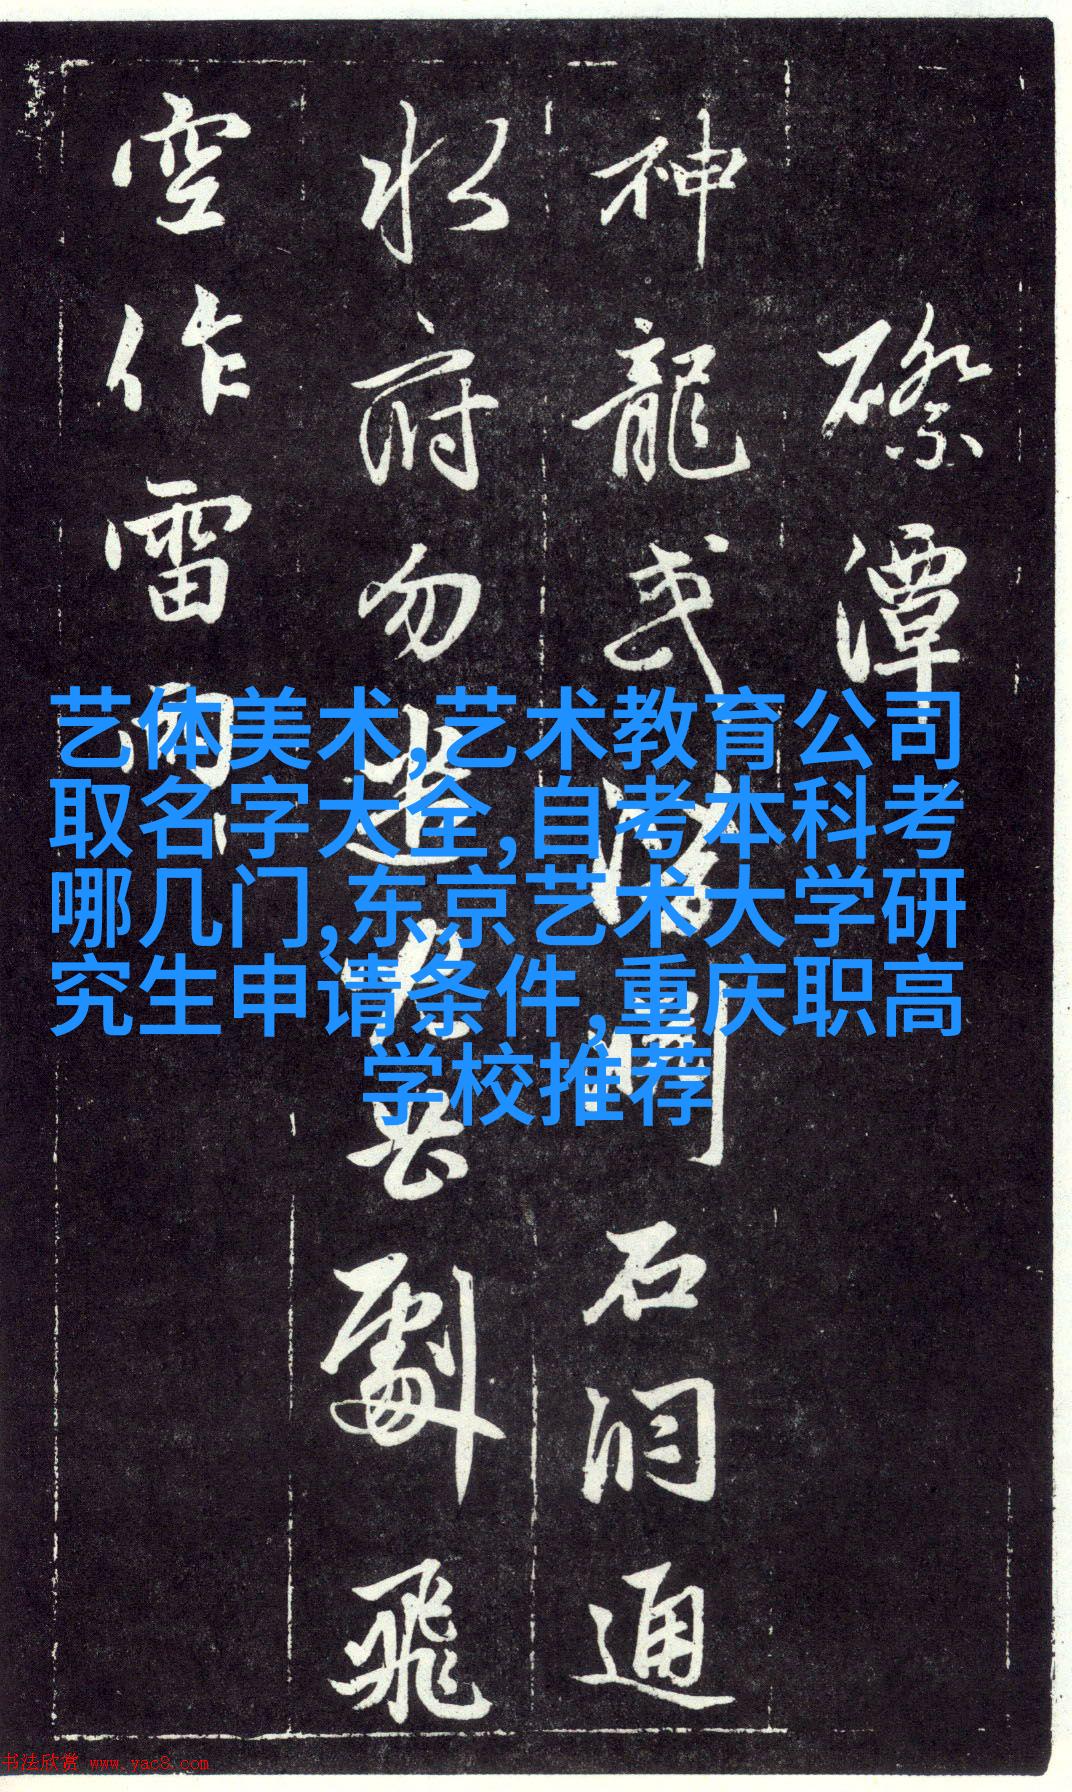 磜潭
神龍或潛淵石洞通
水府勿
劇飛
空作雷雨
艺体美术,艺术教育公司
取名字大全,自考本科考
哪几门,东京艺术大学研
究生申请条件,重庆职高
学校推荐
书法欣赏 www.yac8.com